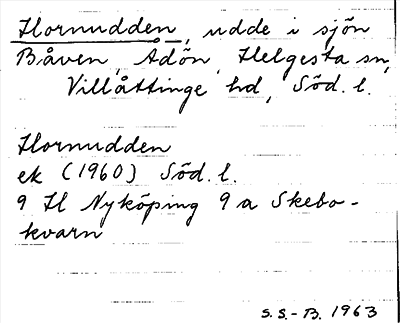 Hornudden, udde i sjön
Båven, Adön, Helgesta sn,
Villåttinge hd, Söd. l.
Hornudden
ek (1960) Söd. l.
9 H Nyköping 9 a Skebo-
kvarn
S.S.-B. 1963